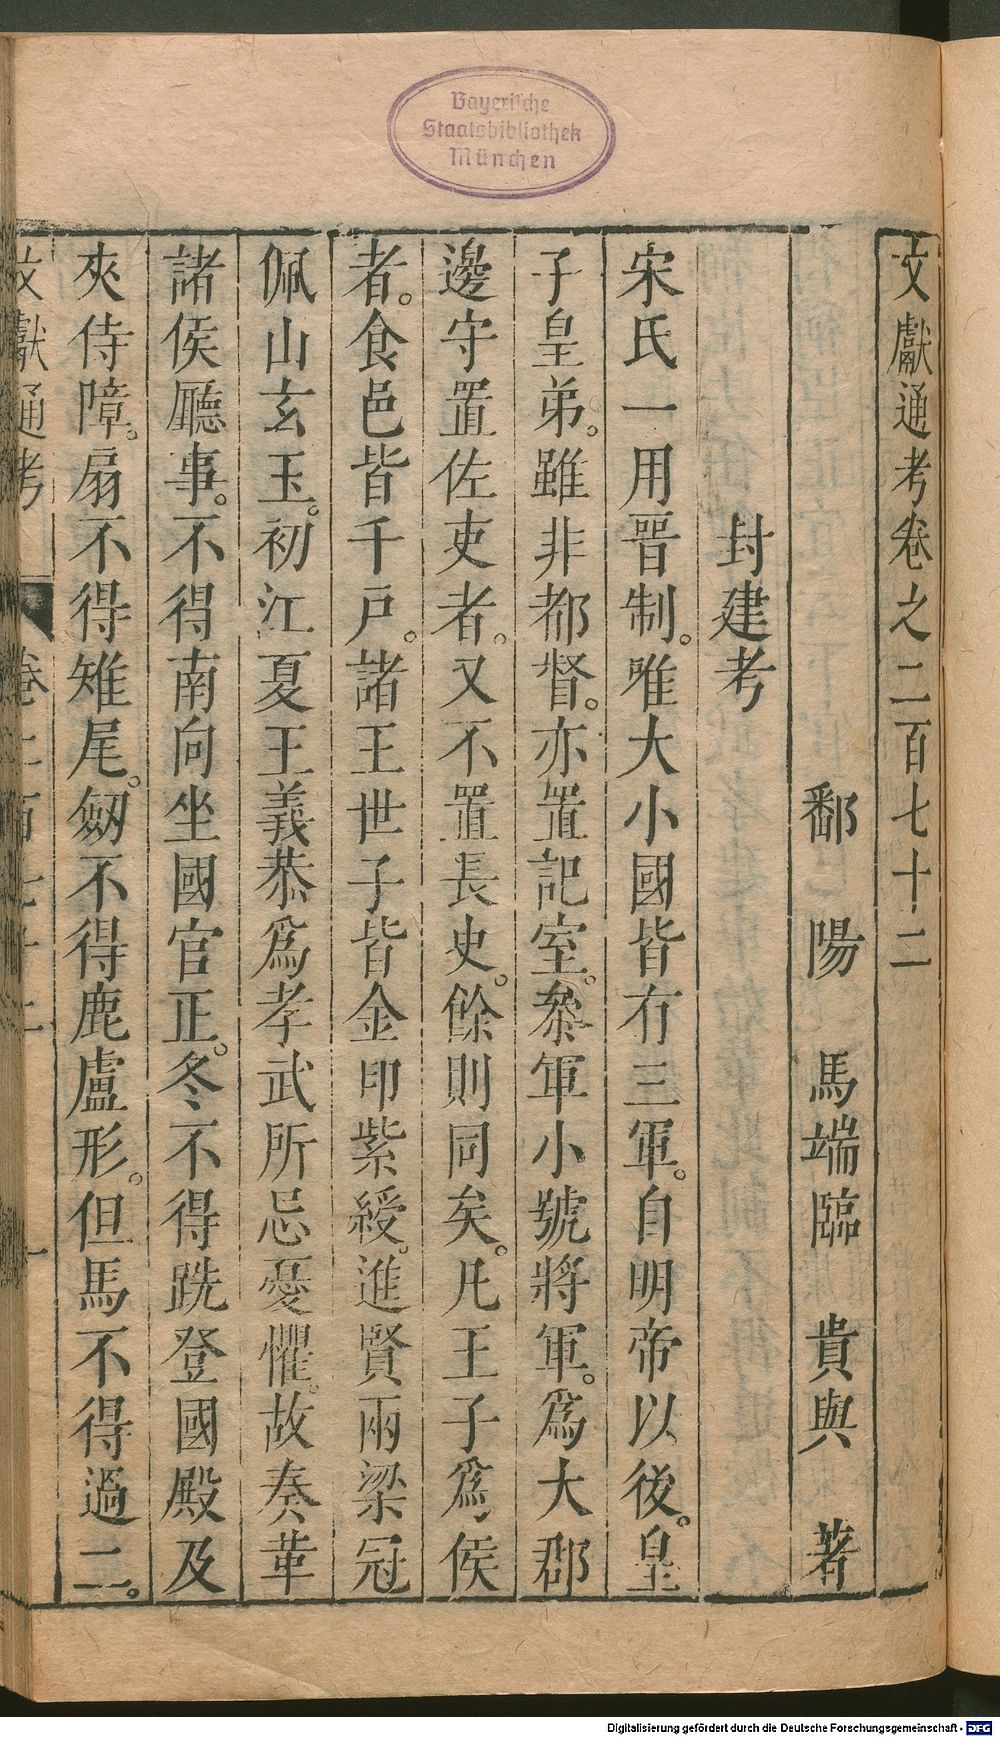 Bayerische
Staatsbibliothek
München
文獻通考卷之二百七十二
鄱陽馬端臨貴與著
封建考
宋氏一用晉制。唯大小國皆有三軍。自明帝以後。皇
子皇弟。雖非都督。亦置記室。參軍小號將軍。爲大郡
邊守置佐吏者。又不置長史。餘則同矣。凡王子爲侯
者。食邑皆千戶。諸王世子皆金印紫綬。進賢兩梁冠
佩山玄玉。初江夏王義恭爲孝武所忌憂懼。故奏革
諸侯廳事。不得南向坐國官正。冬不得跣登國殿及
夾侍障。扇不得雉尾。劒不得鹿盧形。但馬不得過二。
文獻通考
卷二百七十二
一
Digitalisierung gefördert durch die Deutsche Forschungsgemeinschaft - DFG